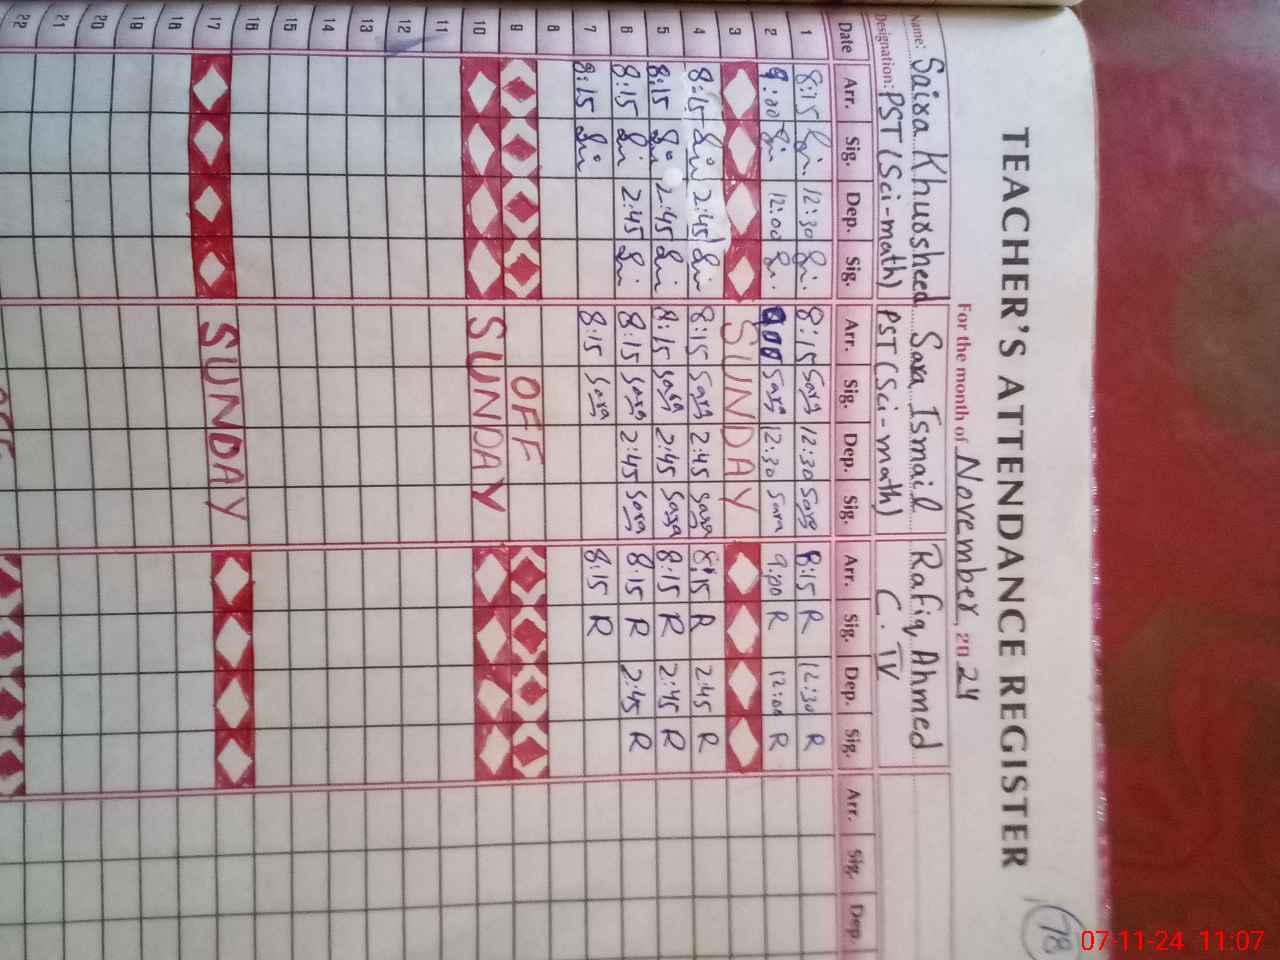 78
TEACHER'S ATTENDANCE REGISTER
For the month of November, 2024
Name: Saira Khursheed Sara Ismail Rafiq Ahmed
Designation: PST (Sci-math) PST (Sci-math) C. IV
Date Arr. Sig. Dep. Sig. Arr. Sig. Dep. Sig. Arr. Sig. Dep. Sig. Arr. Sig. Dep.
1 8:15 12:30 8:15 Sara 12:30 Sara 8:15 R 12:30 R
2 9:00 12:00 Sara 12:30 Sara 9:00 R 12:00 R
3 SUNDAY
4 8:15 2:45 8:15 Sara 2:45 Sara 8:15 R 2:45 R
5 8:15 2:45 8:15 Sara 2:45 Sara 8:15 R 2:45 R
6 8:15 2:45 8:15 Sara 2:45 Sara 8:15 R 2:45 R
7 8:15 8:15 Sara 8:15 R
8
9 OFF
10 SUNDAY
11
12
13
14
15
16
17 SUNDAY
18
19
20
21
22
07-11-24 11:07